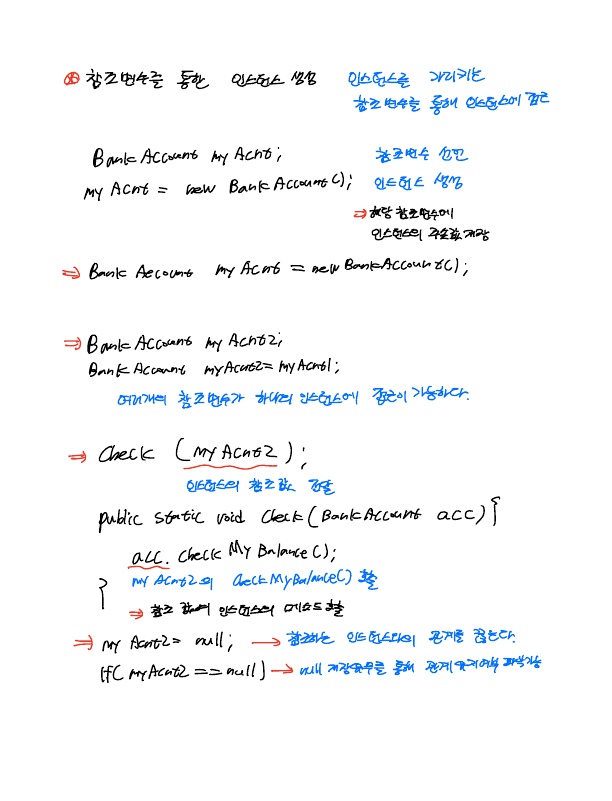 ⊛ 참조변수를 통한 인스턴스 생성 인스턴스를 가리키는
참조변수를 통해 인스턴스에 접근
BankAccount myAcnt; 참조변수 선언
myAcnt = new BankAccount(); 인스턴스 생성
⇒ 해당 참조변수에
인스턴스의 주소값 저장
⇒ BankAccount myAcnt = new BankAccount();
⇒ BankAccount myAcnt2;
BankAccount myAcnt2 = myAcnt1;
여러개의 참조변수가 하나의 인스턴스에 접근이 가능하다.
⇒ Check (myAcnt2);
인스턴스의 참조값 전달
public static void Check(BankAccount acc) {
acc. CheckMyBalance();
myAcnt2의 CheckMyBalance() 호출
}
⇒ 참조 값의 인스턴스의 메소드 호출
⇒ myAcnt2 = null; → 참조하는 인스턴스와의 관계를 끊는다.
If( myAcnt2 == null) → null 저장유무를 통해 관계 유지여부 파악가능